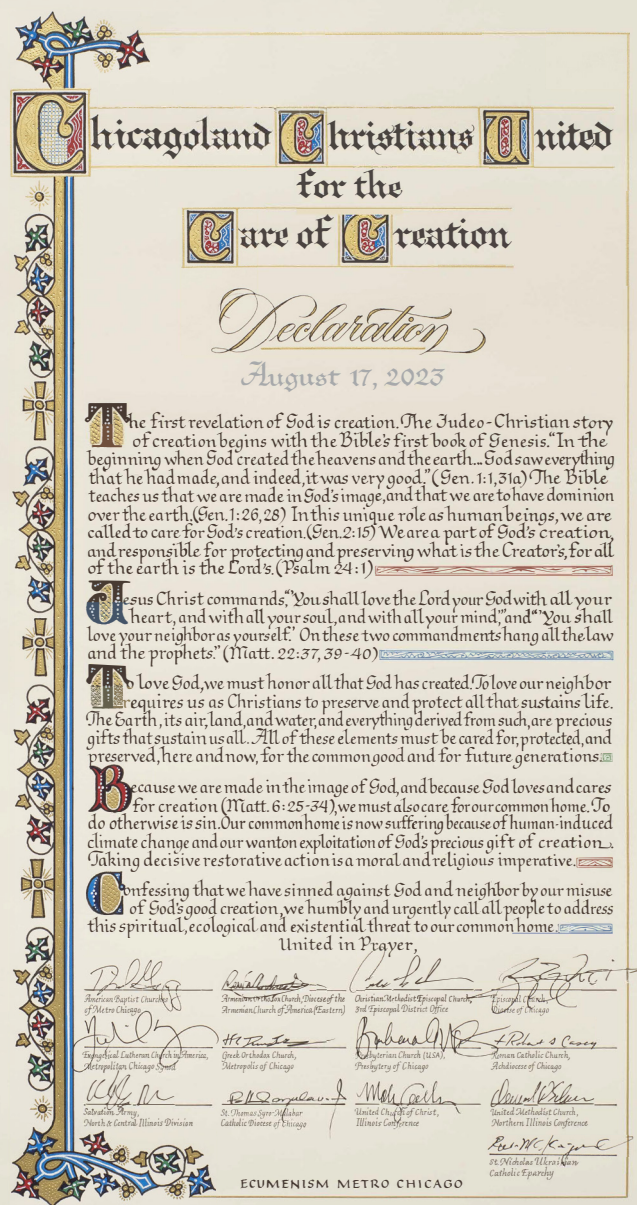 Chicagoland Christians United
for the
Care of Creation
Declaration
August 17, 2023
The first revelation of God is creation. The Judeo-Christian story
of creation begins with the Bible's first book of Genesis. "In the
beginning when God created the heavens and the earth... God saw everything
that he had made, and indeed, it was very good." (Gen. 1:1, 31a) The Bible
teaches us that we are made in God's image, and that we are to have dominion
over the earth. (Gen. 1:26, 28) In this unique role as human beings, we are
called to care for God's creation. (Gen. 2:15) We are a part of God's creation,
and responsible for protecting and preserving what is the Creator's, for all
of the earth is the Lord's. (Psalm 24:1)
Jesus Christ commands, "'You shall love the Lord your God with all your
heart, and with all your soul, and with all your mind,'" and "'You shall
love your neighbor as yourself.' On these two commandments hang all the law
and the prophets." (Matt. 22:37, 39-40)
To love God, we must honor all that God has created. To love our neighbor
requires us as Christians to preserve and protect all that sustains life.
The Earth, its air, land, and water, and everything derived from such, are precious
gifts that sustain us all. All of these elements must be cared for, protected, and
preserved, here and now, for the common good and for future generations.
Because we are made in the image of God, and because God loves and cares
for creation (Matt. 6:25-34), we must also care for our common home. To
do otherwise is sin. Our common home is now suffering because of human-induced
climate change and our wanton exploitation of God's precious gift of creation.
Taking decisive restorative action is a moral and religious imperative.
Confessing that we have sinned against God and neighbor by our misuse
of God's good creation, we humbly and urgently call all people to address
this spiritual, ecological and existential threat to our common home.
United in Prayer,
American Baptist Churches
of Metro Chicago
Armenian Orthodox Church, Diocese of the
Armenian Church of America (Eastern)
Christian Methodist Episcopal Church,
3rd Episcopal District Office
Episcopal Church,
Diocese of Chicago
Evangelical Lutheran Church in America,
Metropolitan Chicago Synod
Greek Orthodox Church,
Metropolis of Chicago
Presbyterian Church (USA),
Presbytery of Chicago
+ Robert J Casey
Roman Catholic Church,
Achdiocese of Chicago
Salvation Army,
North & Central Illinois Division
St. Thomas Syro-Malabar
Catholic Diocese of Chicago
United Church of Christ,
Illinois Conference
United Methodist Church,
Northern Illinois Conference
St. Nicholas Ukrainian
Catholic Eparchy
ECUMENISM METRO CHICAGO